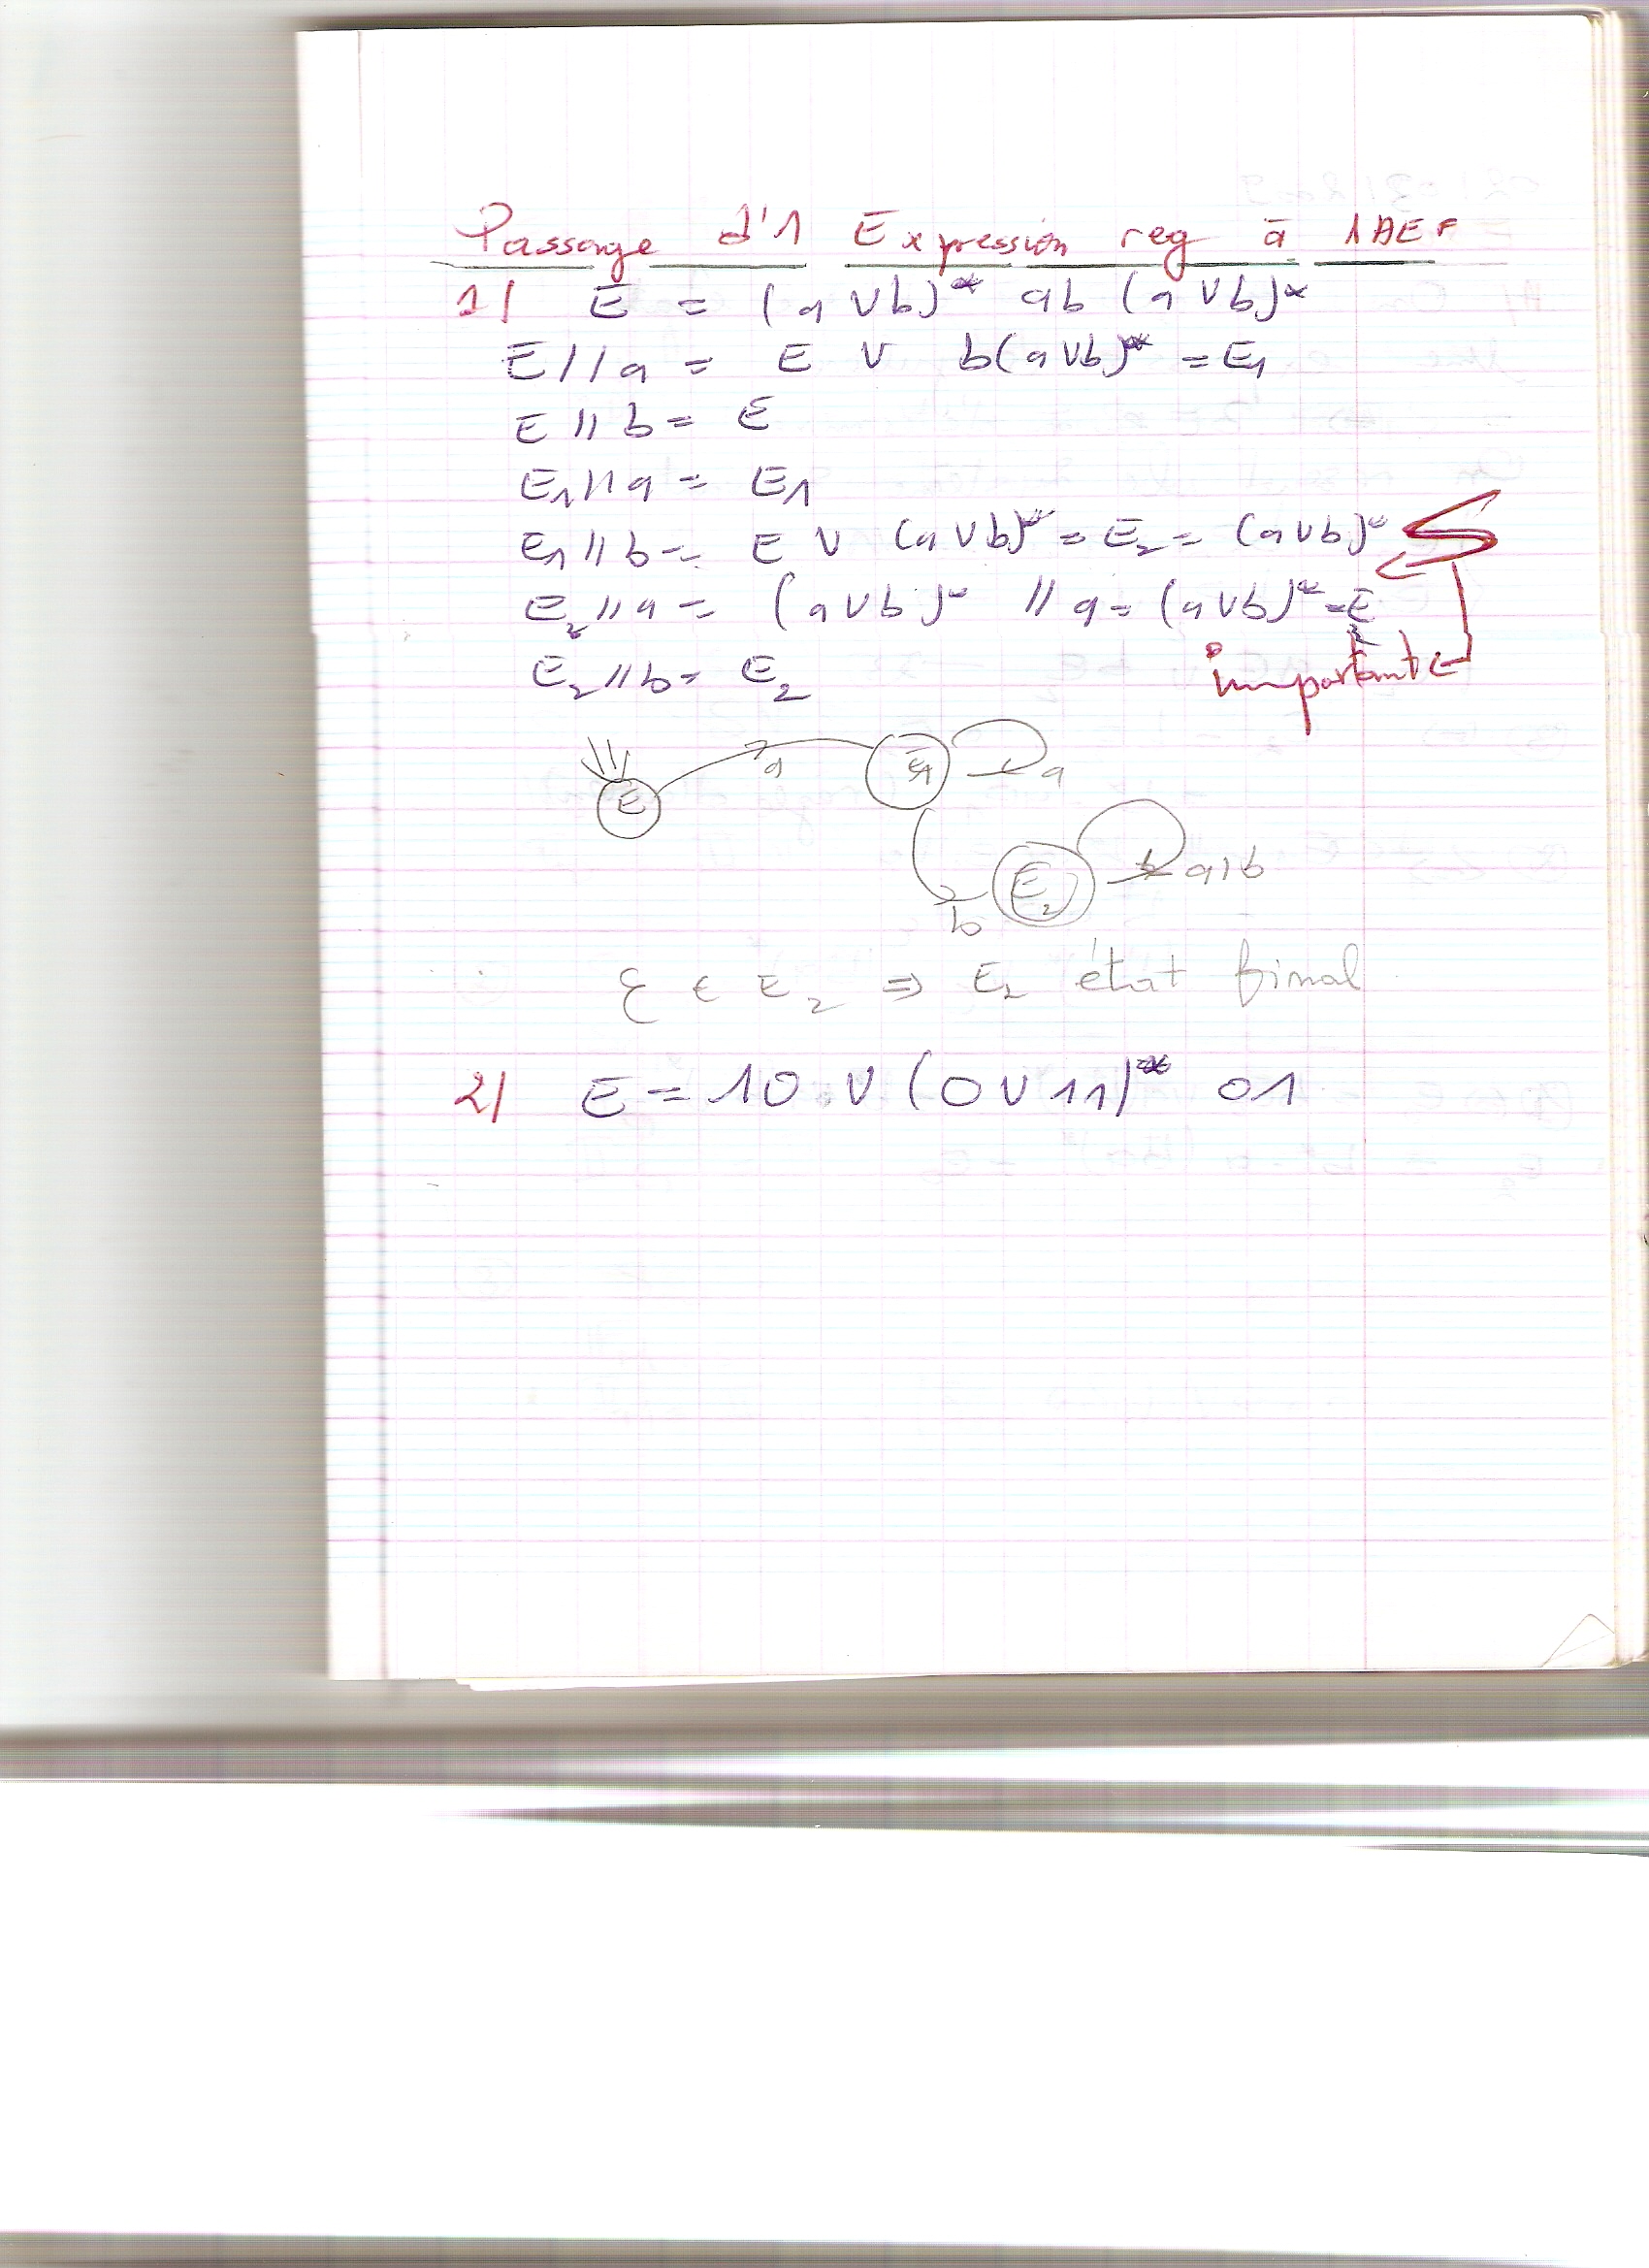 Passage d'1 Expression reg à 1 AEF
1/ E = (a ∨ b)* ab (a ∨ b)*
E // a = E ∨ b(a ∨ b)* = E₁
E // b = E
E₁ // a = E₁
E₁ // b = E ∨ (a ∨ b)* = E₂ = (a ∨ b)*
E₂ // a = (a ∨ b)* // a = (a ∨ b)* = E₂
important
E₂ // b = E₂
E a E₁ a
b E₂ a,b
ε ∈ E₂ ⇒ E₂ état final
2/ E = 10 ∨ (0 ∨ 11)* 01